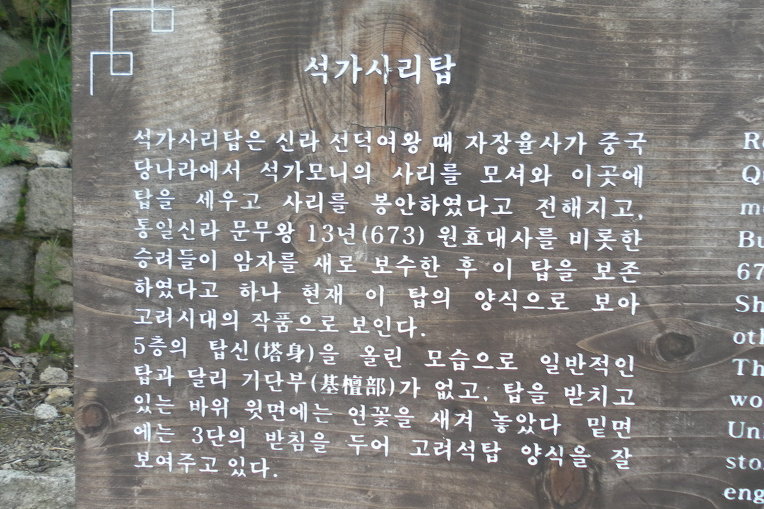 석가사리탑
석가사리탑은 신라 선덕여왕 때 자장율사가 중국
당나라에서 석가모니의 사리를 모셔와 이곳에
탑을 세우고 사리를 봉안하였다고 전해지고,
통일신라 문무왕 13년(673) 원효대사를 비롯한
승려들이 암자를 새로 보수한 후 이 탑을 보존
하였다고 하나 현재 이 탑의 양식으로 보아
고려시대의 작품으로 보인다.
5층의 탑신(塔身)을 올린 모습으로 일반적인
탑과 달리 기단부(基檀部)가 없고, 탑을 받치고
있는 바위 윗면에는 연꽃을 새겨 놓았다 밑면
에는 3단의 받침을 두어 고려석탑 양식을 잘
보여주고 있다.